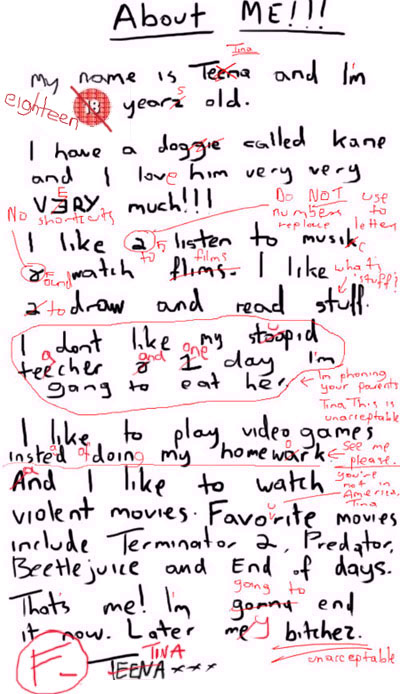 About ME!!!
Tina
My name is Teena and I'm
eighteen 18 yearz s old.
I have a doggie called Kane
and I love him very very
V3RY E much!!!
No shortcuts
Do NOT use
numbers to
replace letters
I like 2 to listen to musik c
& and watch flims. films I like
what's "stuff"?
2 to draw and read stuff.
I dont like my stoopid u
teecher a & and 1 one day I'm
gang to eat her.
I'm phoning
your parents
Tina This is
unacceptable
I like to play video games
insted a of doing my homewark o
See me
please.
And a I like to watch
you're
not in
America,
Tina
violent movies. Favorite u movies
include Terminator 2, Predator,
Beetlejuice and End of days.
going to
That's me! I'm gonna end
it now. Later me y bitchez.
unacceptable
F-
TINA
TEENA xxx